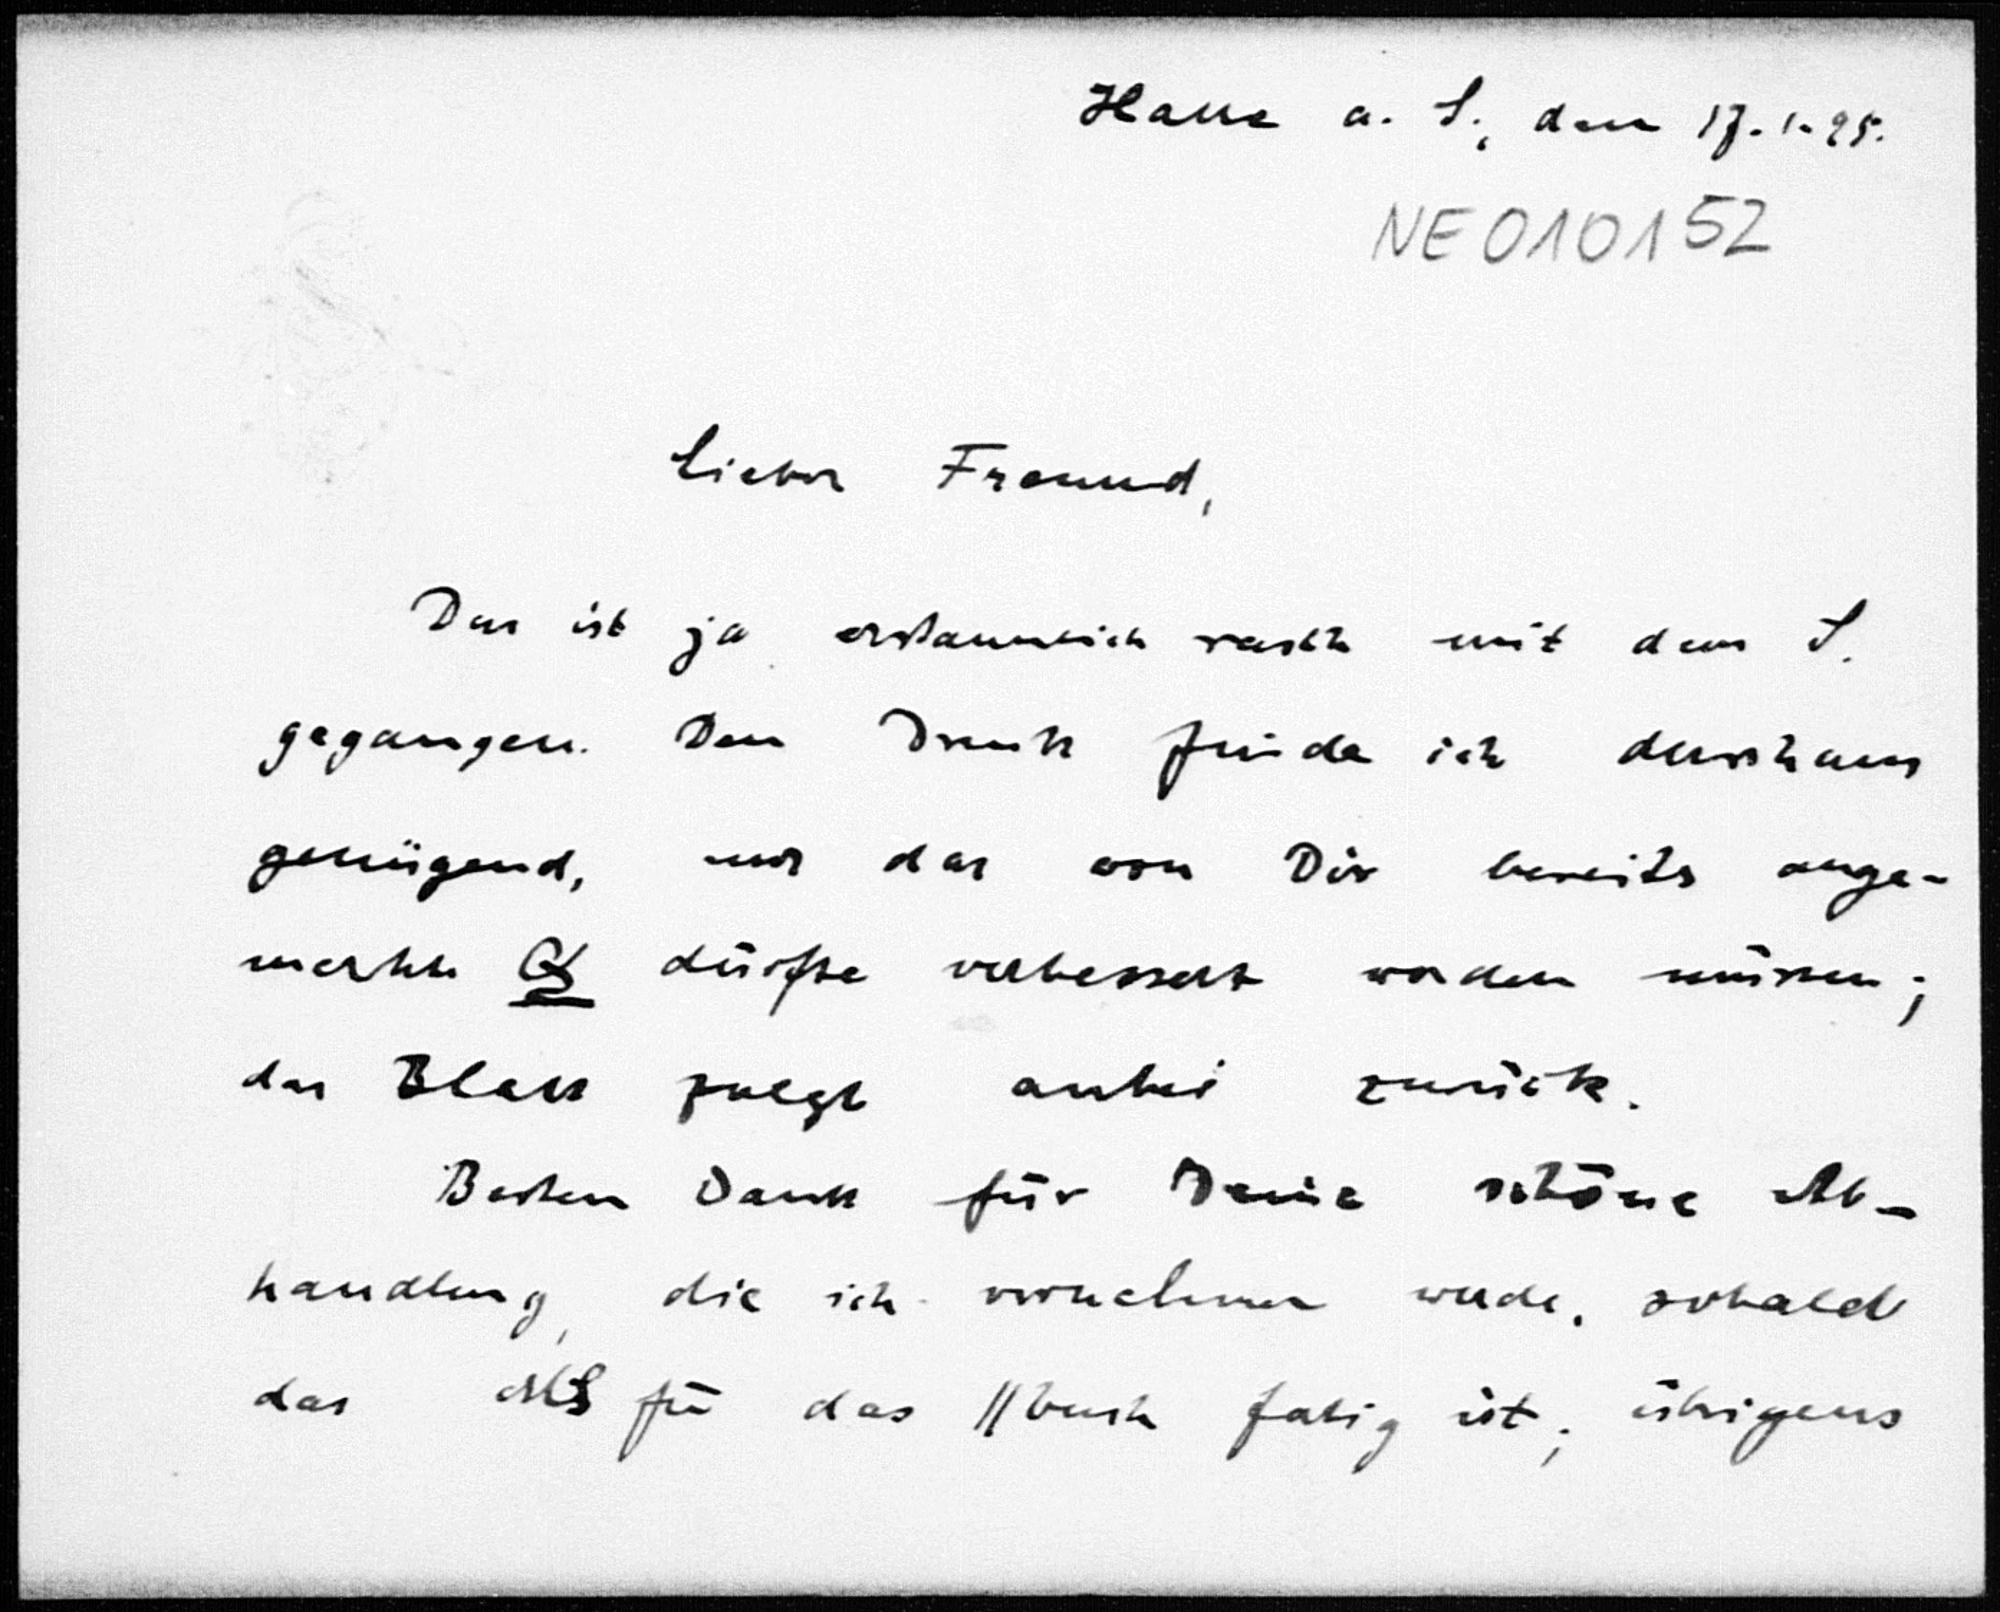 Halle a. S., den 17.1.95.
NE010152
Lieber Freund,
Das ist ja erstaunlich rasch mit dem S.
gegangen. Den Druck finde ich durchaus
genügend, nur das von Dir bereits ange-
merkte dürfte verbessert werden müssen;
das Blatt folgt anbei zurück.
Besten Dank für Deine schöne Ab-
handlung, die ich vornehmen werde, sobald
das MS für das fertig ist; übrigens